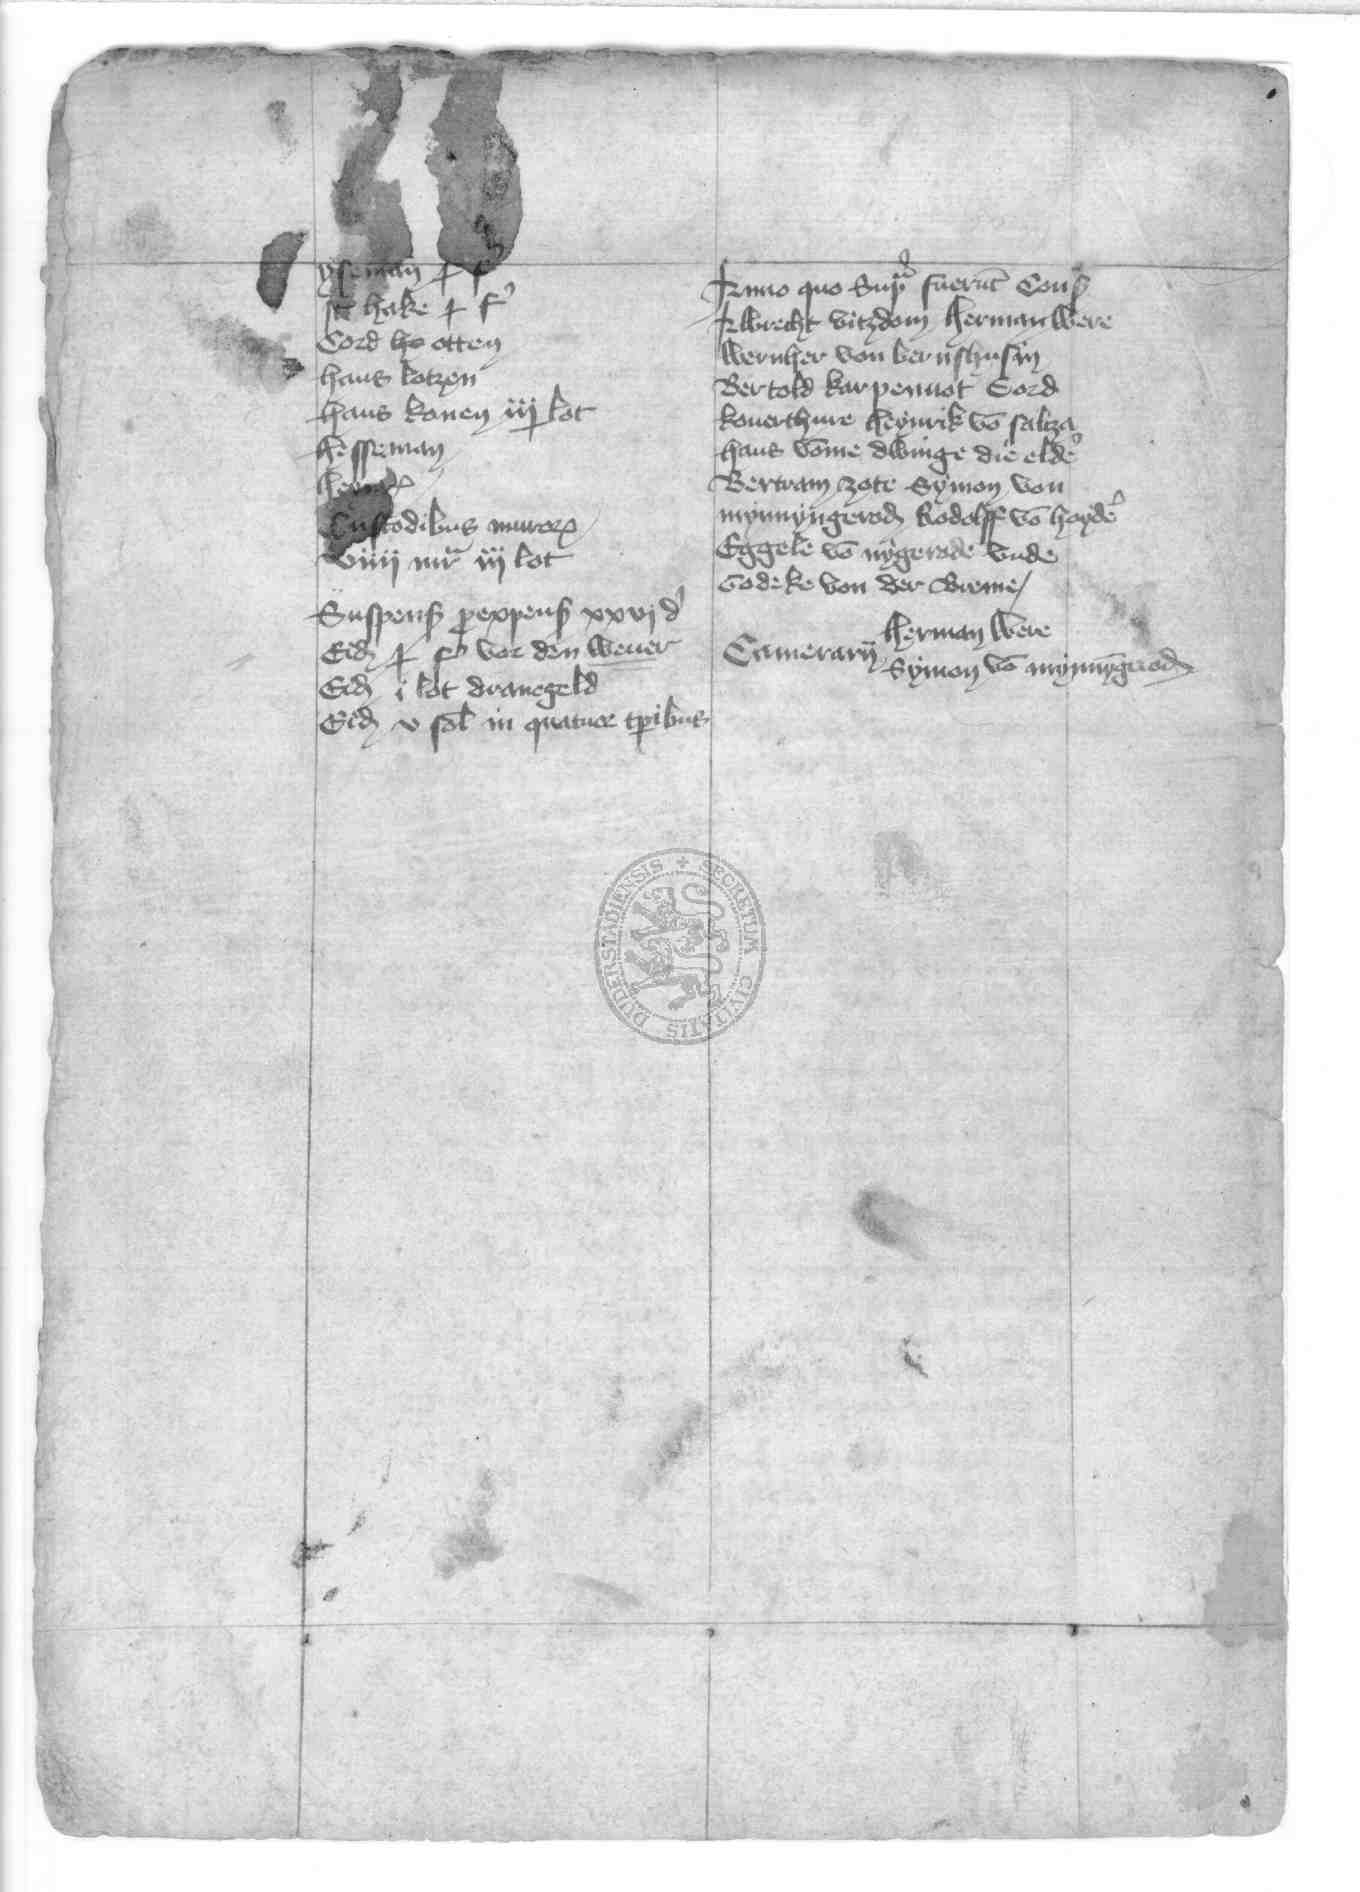 yseman̄
hake
Cord he otten
hans lotzen
hans konen iij lot
hesseman
Custodibus muroꝝ
viiij mr̄ iij lot
Suspens ꝓ expens xxvj d
Eid vor den wener
Eid i lot dranegeld
Eid v sol in quatuor tꝑibus
Anno quo Supᵃ fuerūt Cons
Albrecht vitzdom herman Were
Wernher von bernshusin
Bertold karpenuot Cord
kouerthure heynrik vō saltza
hans vōme dwinge die elde
Bertram zote Symon von
mynnyngerod Rodolff vō
Eggele vō nÿgerode vnde
Godeke von der
Camerarij herman Were
Symon vō mynnȳgerod
DUDERSTADIENSIS + SECRETUM CIVITATIS